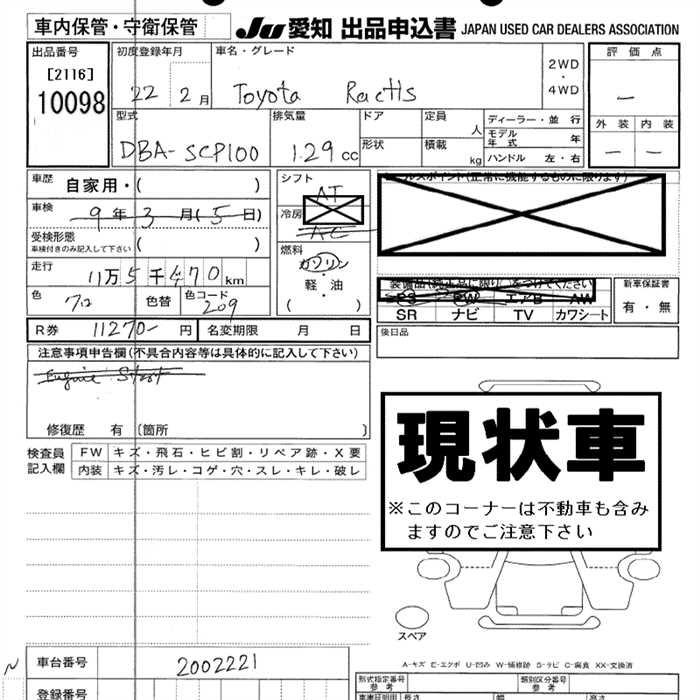 車内保管・守衛保管
JU 愛知 出品申込書 JAPAN USED CAR DEALERS ASSOCIATION
出品番号
[2116]
10098
初度登録年月
22 2月
車名・グレード
Toyota Ractis
2WD
・
4WD
評価点
—
外装 内装
— —
型式
DBA-SCP100
排気量
1.29cc
ドア
形状
定員
人
積載
kg
ディーラー・並行
モデル年式 年
ハンドル 左・右
車歴 自家用・( )
車検 9年3月(5日)
受検形態
車検付きのみ記入して下さい ( )
走行
11万5千470km
色
色替
色コード
209
シフト
AT
冷房
AC
燃料
ガソリン
・
軽・油
( )
セールスポイント(正常に機能するものに限ります)
装備品(純正品に限り)をつけてください
PS PW エアB AW
SR ナビ TV カワシート
新車保証書
有・無
後日品
R券 11270- 円 名変期限 月 日
注意事項申告欄(不具合内容等は具体的に記入して下さい)
Engine Start
修復歴 有 〔箇所 〕
検査員
記入欄
FW キズ・飛石・ヒビ割・リペア跡・X要
内装 キズ・汚レ・コゲ・穴・スレ・キレ・破レ
現状車
※このコーナーは不動車も含み
ますのでご注意下さい
スペア
A-キズ E-エクボ U-凹み W-補修跡 S-サビ C-腐食 XX-交換済
車台番号 2002221
登録番号
型式指定番号
参考
類別区分番号
参考
車庫証明用 長さ 幅 高さ